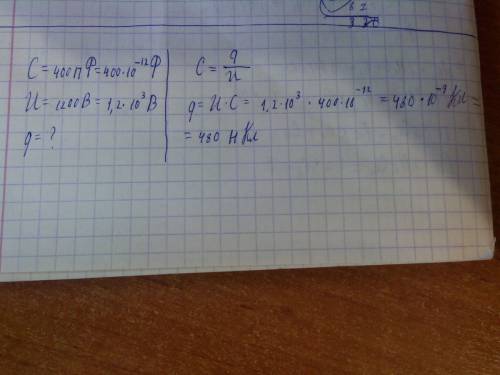 C = 400 пФ = 400·10⁻¹² Ф
U = 1200 В = 1,2·10³ В
q = ?
C = q/U
q = U·C = 1,2·10³ · 400·10⁻¹² = 480·10⁻⁹ Кл =
= 480 нКл